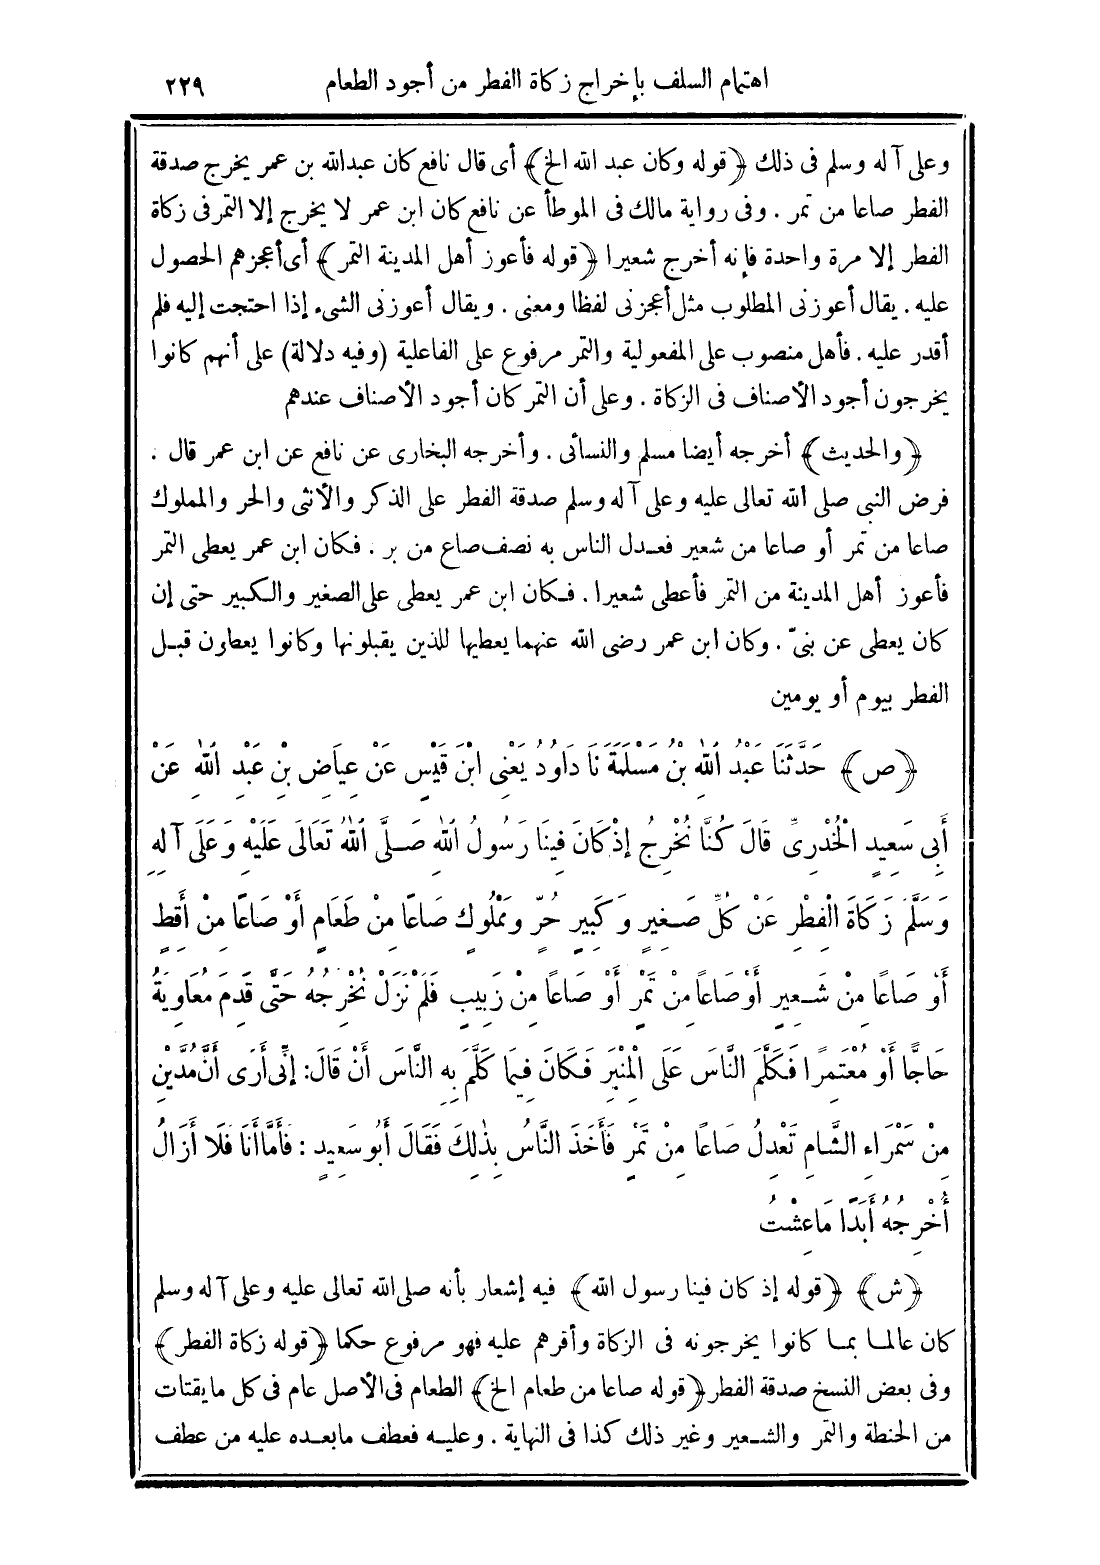 اهتمام السلف بإخراج زكاة الفطر من أجود الطعام ٢٢٩
وعلى آله وسلم فى ذلك ﴿قوله وكان عبد الله الخ﴾ أى قال نافع كان عبدالله بن عمر يخرج صدقة
الفطر صاعا من تمر . وفى رواية مالك فى الموطأ عن نافع كان ابن عمر لا يخرج إلا التمر فى زكاة
الفطر إلا مرة واحدة فإنه أخرج شعيرا ﴿قوله فأعوز أهل المدينة التمر﴾ أى أعجزهم الحصول
عليه . يقال أعوزنى المطلوب مثل أعجزنى لفظا ومعنى . ويقال أعوزنى الشىء إذا احتجت إليه فلم
أقدر عليه . فأهل منصوب على المفعولية والتمر مرفوع على الفاعلية (وفيه دلالة) على أنهم كانوا
يخرجون أجود الأصناف فى الزكاة . وعلى أن التمر كان أجود الأصناف عندهم
﴿والحديث﴾ أخرجه أيضا مسلم والنسائى . وأخرجه البخارى عن نافع عن ابن عمر قال .
فرض النبى صلى الله تعالى عليه وعلى آله وسلم صدقة الفطر على الذكر والأنثى والحر والمملوك
صاعا من تمر أو صاعا من شعير فعدل الناس به نصف صاع من بر . فكان ابن عمر يعطى التمر
فأعوز أهل المدينة من التمر فأعطى شعيرا . فكان ابن عمر يعطى على الصغير والكبير حتى إن
كان يعطى عن بنىّ . وكان ابن عمر رضى الله عنهما يعطيها للذين يقبلونها وكانوا يعطون قبل
الفطر بيوم أو يومين
﴿ص﴾ حَدَّثَنَا عَبْدُ اللهِ بْنُ مَسْلَمَةَ نَا دَاوُدُ يَعْنِى ابْنَ قَيْسٍ عَنْ عِيَاضِ بْنِ عَبْدِ اللهِ عَنْ
أَبِى سَعِيدٍ الْخُدْرِىِّ قَالَ كُنَّا نُخْرِجُ إِذْ كَانَ فِينَا رَسُولُ اللهِ صَلَّى اللهُ تَعَالَى عَلَيْهِ وَعَلَى آلِهِ
وَسَلَّمَ زَكَاةَ الْفِطْرِ عَنْ كُلِّ صَغِيرٍ وَكَبِيرٍ حُرٍّ وَمَمْلُوكٍ صَاعًا مِنْ طَعَامٍ أَوْ صَاعًا مِنْ أَقِطٍ
أَوْ صَاعًا مِنْ شَعِيرٍ أَوْ صَاعاً مِنْ تَمْرٍ أَوْ صَاعًا مِنْ زَبِيبٍ فَلَمْ نَزَلْ نُخْرِجُهُ حَتَّى قَدِمَ مُعَاوِيَةُ
حَاجًّا أَوْ مُعْتَمِرًا فَكَلَّمَ النَّاسَ عَلَى الْمِنْبَرِ فَكَانَ فِيمَا كَلَّمَ بِهِ النَّاسَ أَنْ قَالَ: إِنِّى أَرَى أَنَّ مُدَّيْنِ
مِنْ سَمْرَاءِ الشَّامِ تَعْدِلُ صَاعًا مِنْ تَمْرٍ فَأَخَذَ النَّاسُ بِذٰلِكَ فَقَالَ أَبُو سَعِيدٍ : فَأَمَّا أَنَا فَلَا أَزَالُ
أُخْرِجُهُ أَبَدًا مَا عِشْتُ
﴿ش﴾ ﴿قوله إذ كان فينا رسول الله﴾ فيه إشعار بأنه صلى الله تعالى عليه وعلى آله وسلم
كان عالما بما كانوا يخرجونه فى الزكاة وأقرهم عليه فهو مرفوع حكما ﴿قوله زكاة الفطر﴾
وفى بعض النسخ صدقة الفطر ﴿قوله صاعا من طعام الخ﴾ الطعام فى الأصل عام فى كل ما يقتات
من الحنطة والتمر والشعير وغير ذلك كذا فى النهاية . وعليه فعطف ما بعده عليه من عطف